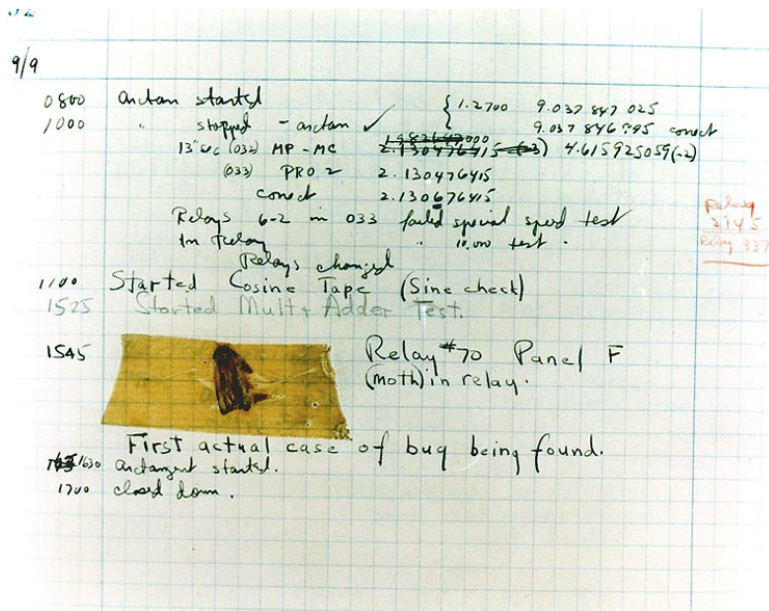 9/9
0800 arctan started { 1.2700 9.037 847 025
1000 " stopped - arctan ✓ 9.037 846 995 conect
13"uc (032) MP - MC 1.982647000 2.130476415 (-3) 4.615925059(-2)
(033) PRO 2 2.130476415
conect 2.130676415
Relays 6-2 in 033 failed special speed test
In Relay " 10.000 test .
Relays changed
Relay
2145
Relay 337
1100 Started Cosine Tape (Sine check)
1525 Started Mult + Adder Test.
1545 Relay #70 Panel F
(moth) in relay.
First actual case of bug being found.
1630 arctangent started.
1700 closed down.